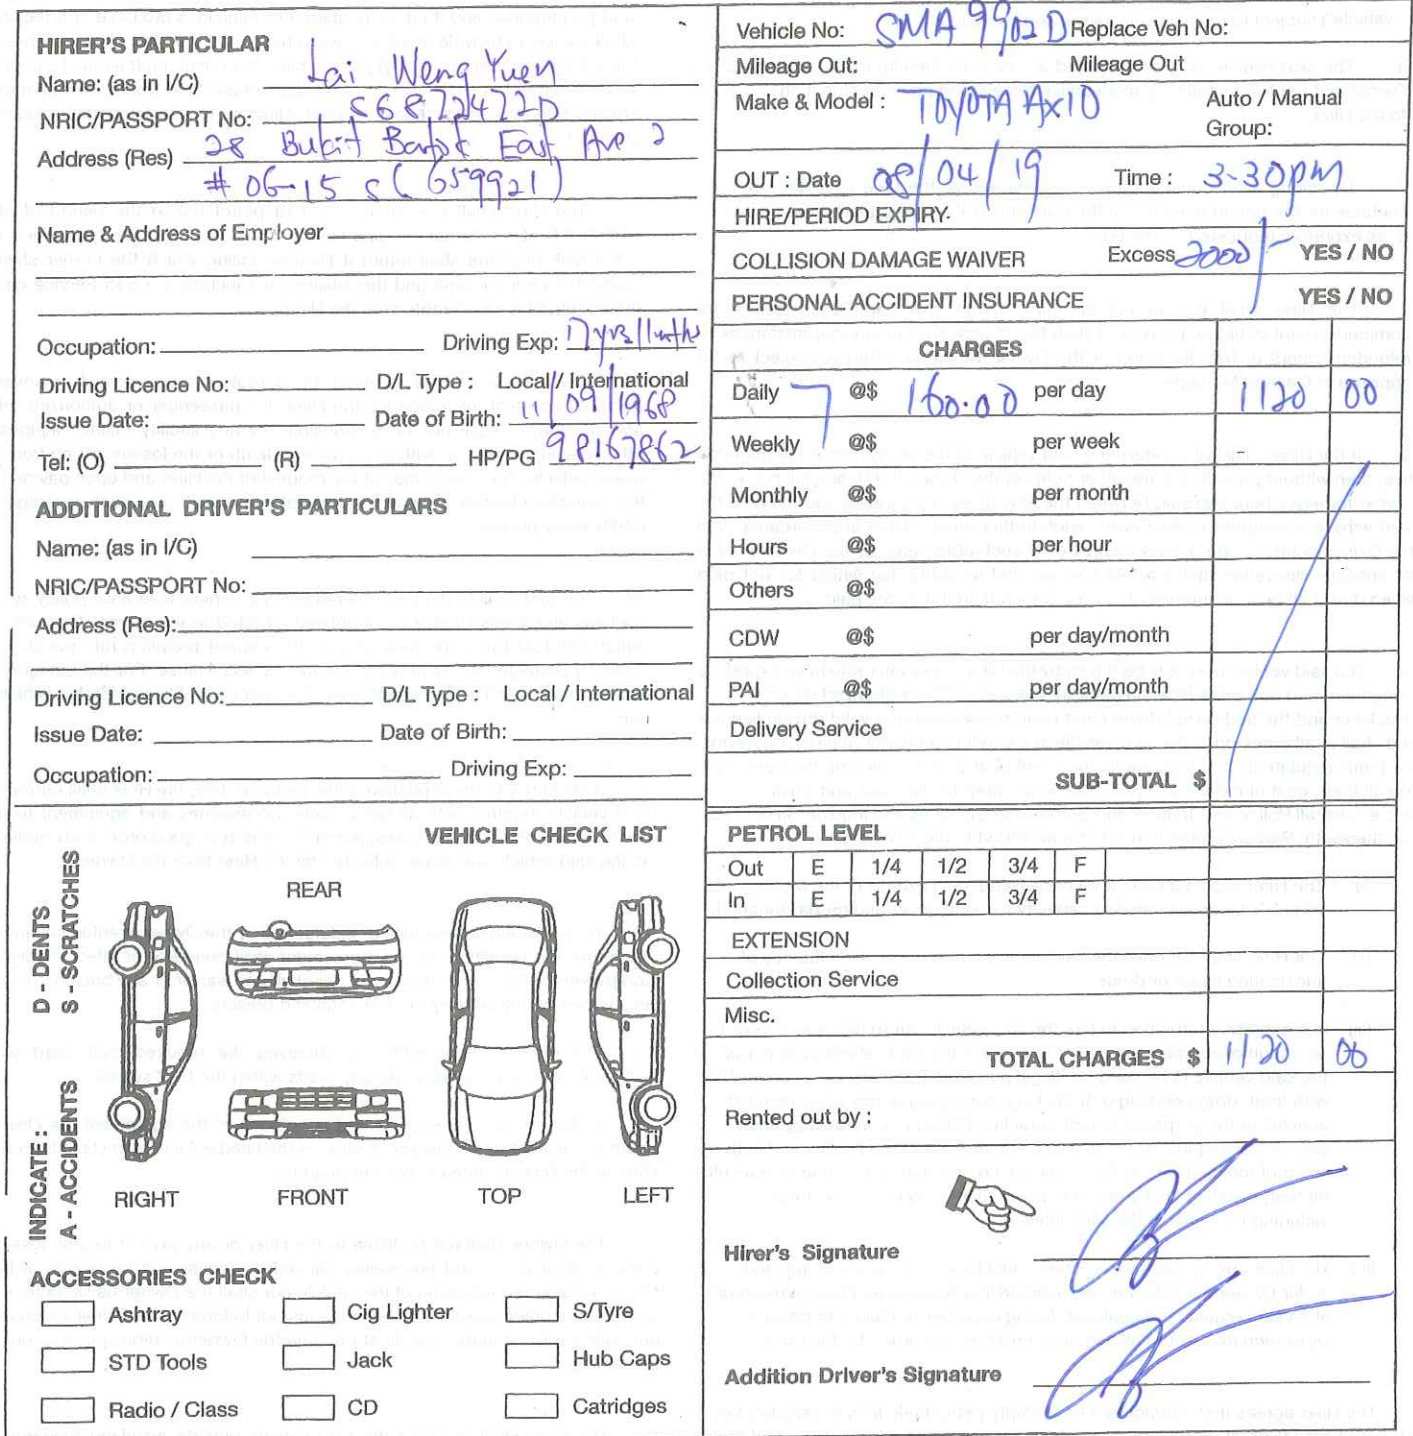 HIRER'S PARTICULAR
Name: (as in I/C) Lai Weng Yuen
NRIC/PASSPORT No: S6872472D
Address (Res) 28 Bukit Batok East Ave 2
# 06-15 S(659921)
Name & Address of Employer
Occupation: Driving Exp: 17yrs/1mths
Driving Licence No: D/L Type : Local / International
Issue Date: Date of Birth: 11/09/1968
Tel: (O) (R) HP/PG 98167862
ADDITIONAL DRIVER'S PARTICULARS
Name: (as in I/C)
NRIC/PASSPORT No:
Address (Res):
Driving Licence No: D/L Type : Local / International
Issue Date: Date of Birth:
Occupation: Driving Exp:
VEHICLE CHECK LIST
INDICATE :: D - DENTS
A - ACCIDENTS S - SCRATCHES
REAR
RIGHT FRONT TOP LEFT
ACCESSORIES CHECK
Ashtray Cig Lighter S/Tyre
STD Tools Jack Hub Caps
Radio / Class CD Catridges
Vehicle No: SMA 9902D Replace Veh No:
Mileage Out: Mileage Out
Make & Model : TOYOTA AxIO Auto / Manual
Group:
OUT : Date 08/04/19 Time : 3-30pm
HIRE/PERIOD EXPIRY.
COLLISION DAMAGE WAIVER Excess 2000/- YES / NO
PERSONAL ACCIDENT INSURANCE YES / NO
CHARGES
Daily 7 @$ 160.00 per day 1120 00
Weekly @$ per week
Monthly @$ per month
Hours @$ per hour
Others @$
CDW @$ per day/month
PAI @$ per day/month
Delivery Service
SUB-TOTAL $
PETROL LEVEL
Out E 1/4 1/2 3/4 F
In E 1/4 1/2 3/4 F
EXTENSION
Collection Service
Misc.
TOTAL CHARGES $ 1120 00
Rented out by :
Hirer's Signature
Addition Driver's Signature